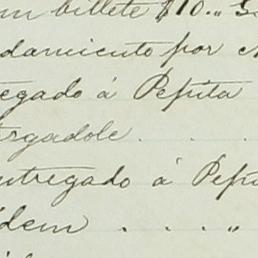 un billete $10.,,
damiento por
egado á Pepita
tregadole . . .
ntregado á Pepi
ídem . . . „